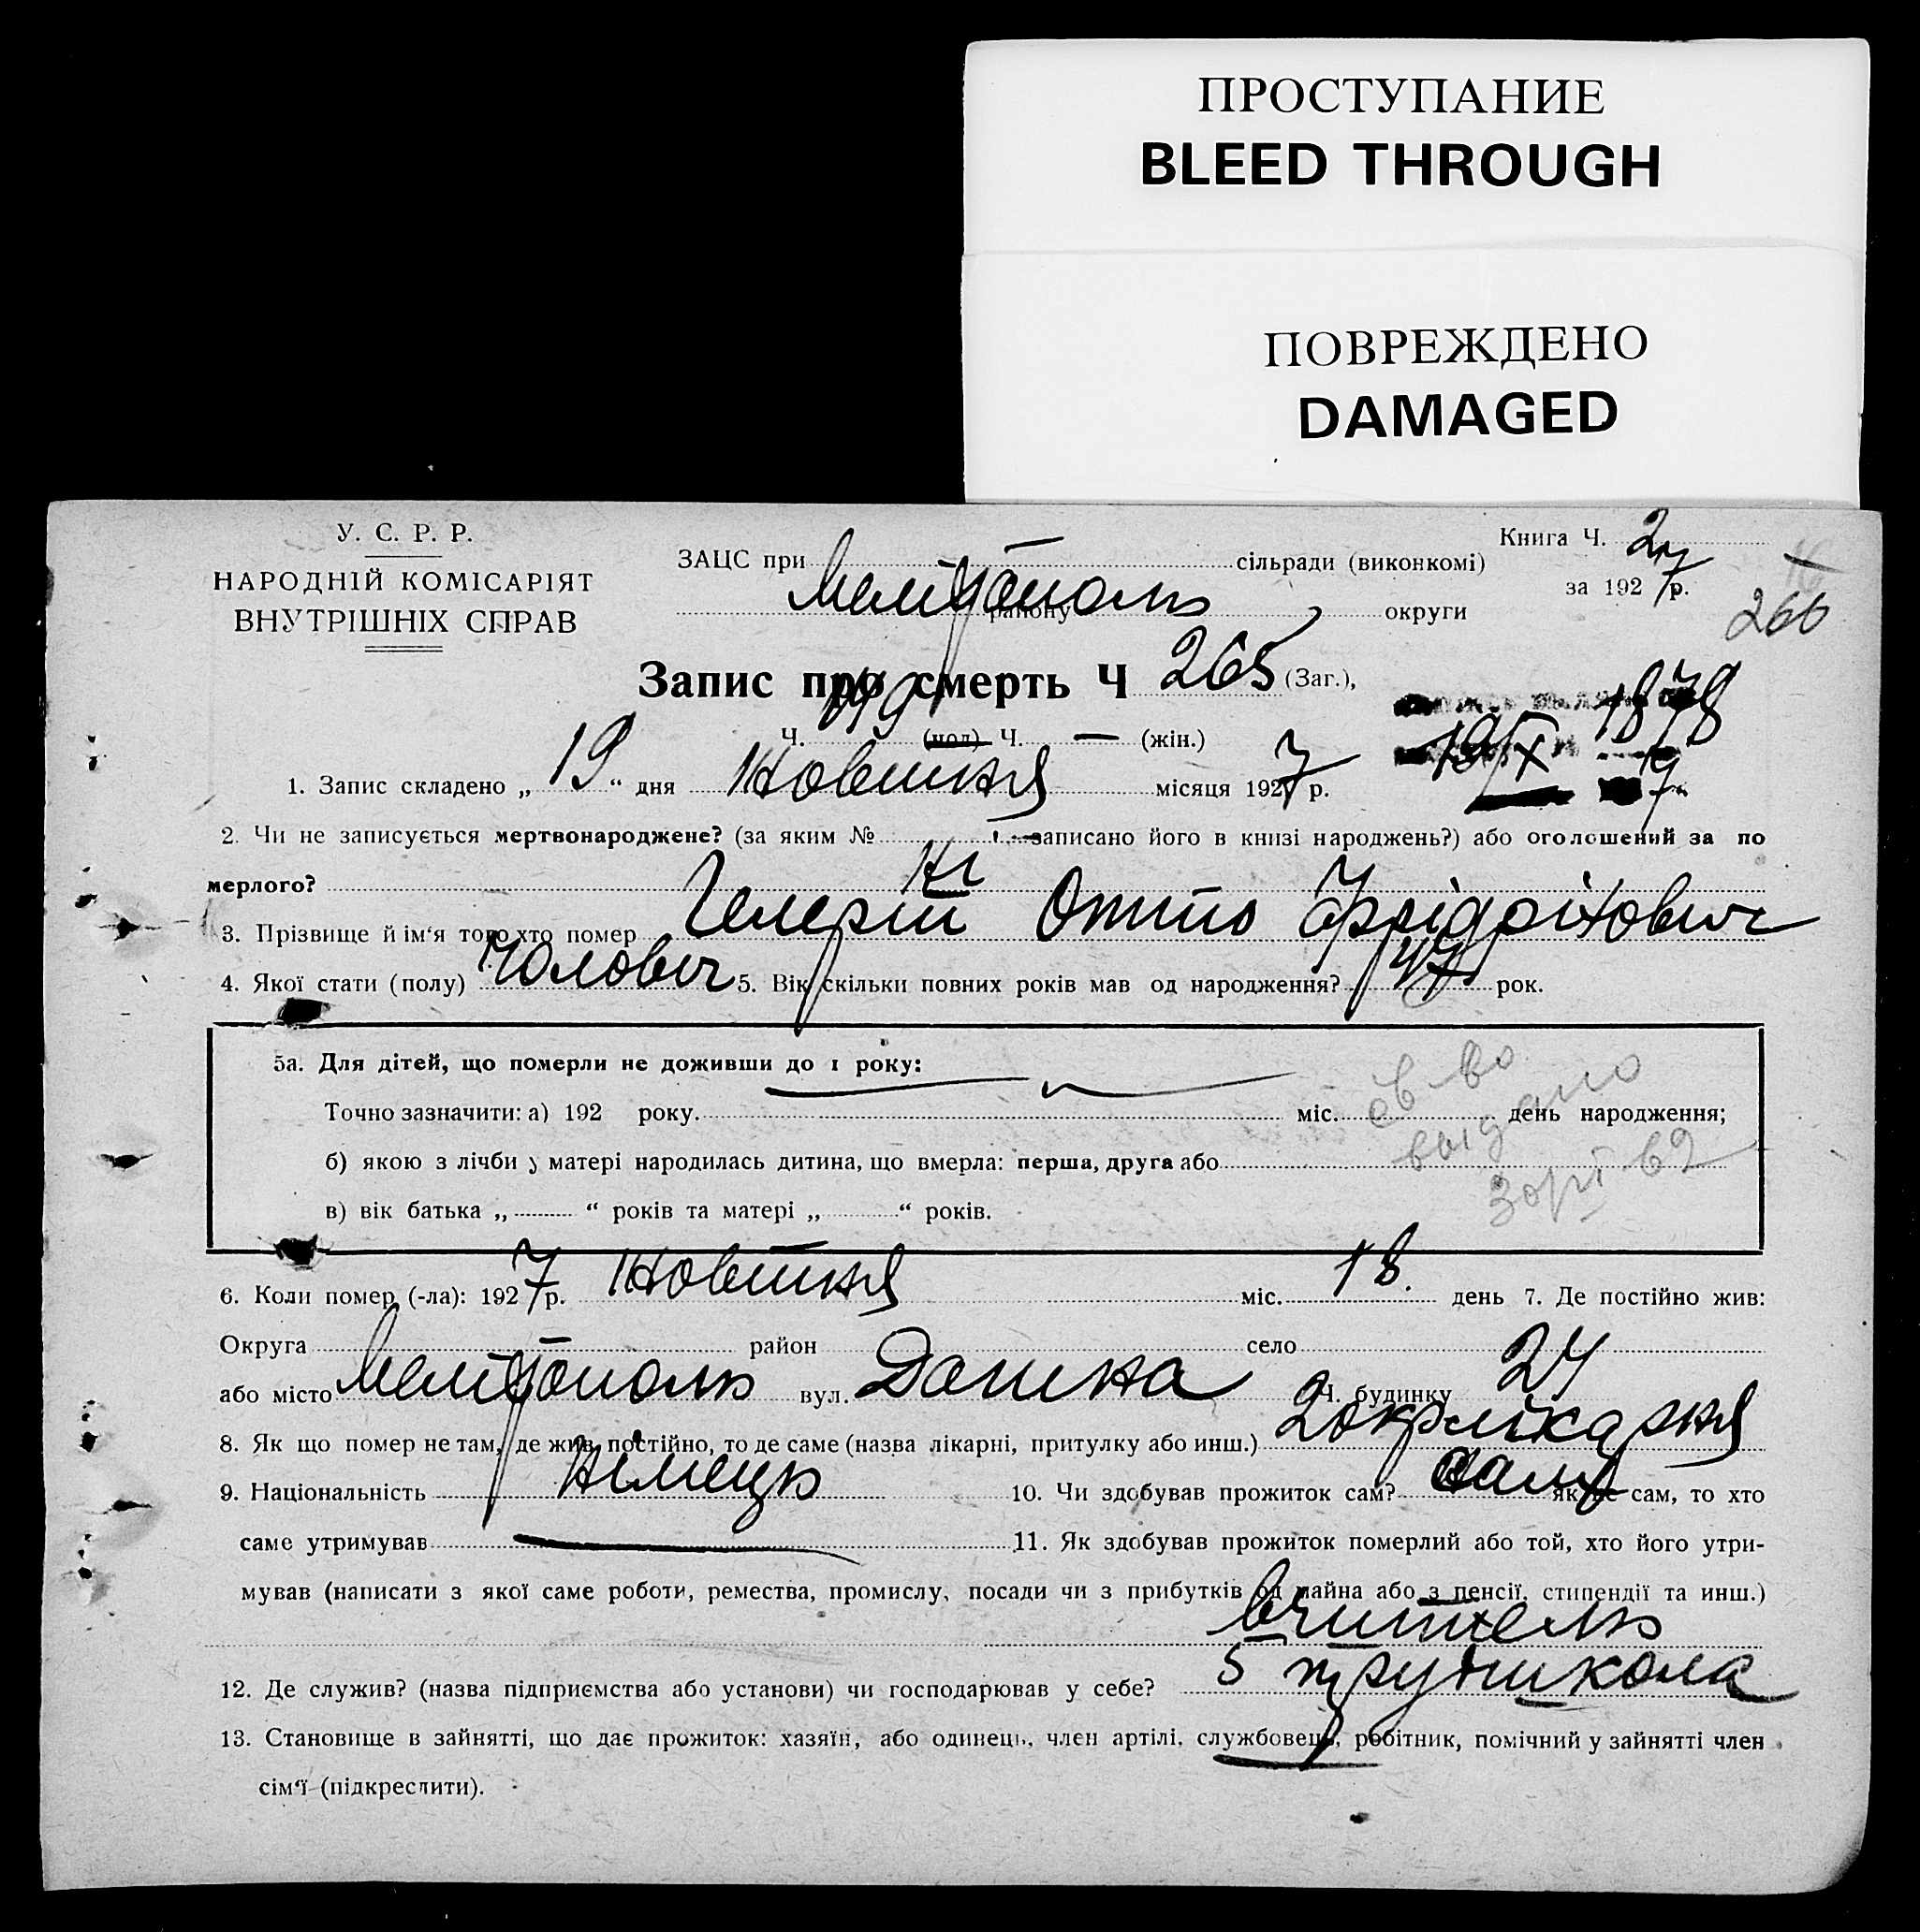 ПРОСТУПАНИЕ
BLEED THROUGH
ПОВРЕЖДЕНО
DAMAGED
У. С. Р. Р.
НАРОДНІЙ КОМІСАРІЯТ
ВНУТРІШНІХ СПРАВ
Книга Ч. 2
за 1927 р.
266
ЗАЦС при сільради (виконкомі)
Мелітополь району округи
Запис про смерть Ч 265 (Заг.),
Ч. 149 (чол) Ч. — (жін.)
1878
19/X
7
1. Запис складено „ 19 “ дня Жовтня місяця 1927 р.
2. Чи не записується мертвонароджене? (за яким № записано його в книзі народжень?) або оголошений за по
мерлого? Ні
3. Прізвище й ім‘я того хто помер Гелерт Отто Фрідріхович
4. Якої стати (полу) Чоловіч 5. Вік скільки повних років мав од народження? 47 рок.
5а. Для дітей, що померли не доживши до 1 року:
Точно зазначити: а) 192 року. міс. день народження;
б) якою з лічби у матері народилась дитина, що вмерла: перша, друга або
в) вік батька „ “ років та матері „ “ років.
св-во
выдано
62
6. Коли помер (-ла): 1927 р. Жовтня міс. 18. день 7. Де постійно жив:
Округа район село
або місто Мелітополь вул. Ч. будинку 24
8. Як що помер не там, де жив постійно, то де саме (назва лікарні, притулку або инш.) 2 окрлікарня
9. Національність Німець 10. Чи здобував прожиток сам? сам як не сам, то хто
саме утримував 11. Як здобував прожиток померлий або той, хто його утри-
мував (написати з якої саме роботи, ремества, промислу, посади чи з прибутків од майна або з пенсії, стипендії та инш.)
вчитель
12. Де служив? (назва підприємства або установи) чи господарював у себе? 5 трудшкола
13. Становище в зайнятті, що дає прожиток: хазяїн, або одинець, член артілі, службовець, робітник, помічний у зайнятті член
сім‘ї (підкреслити).